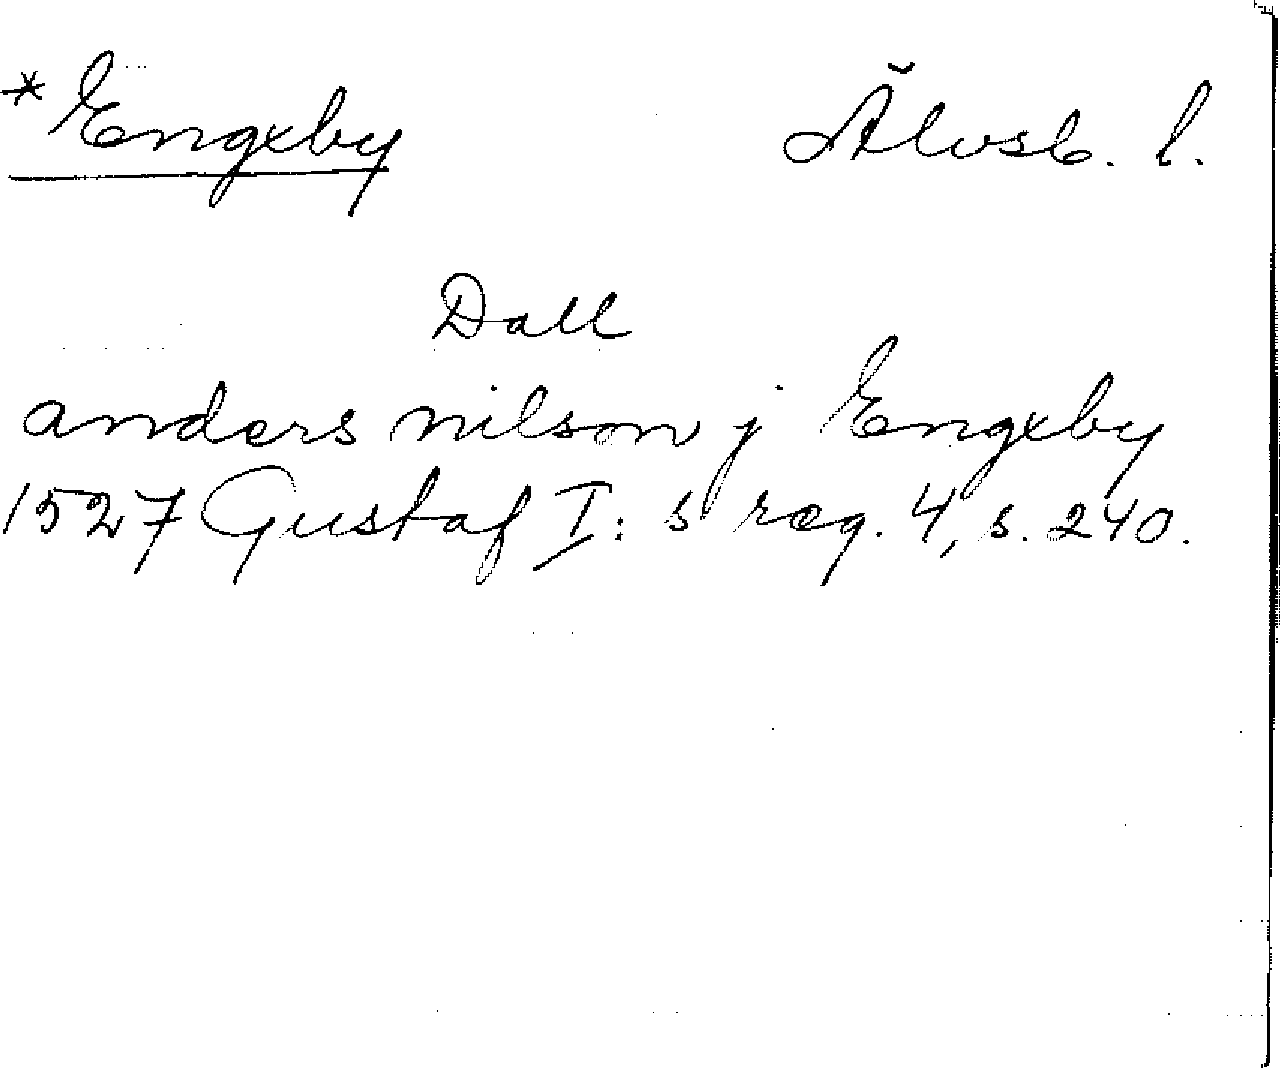 *Engxby Älvsb. l.
Dall
anders nilson j Engxby
1527 Gustaf I:s reg. 4, s. 240.